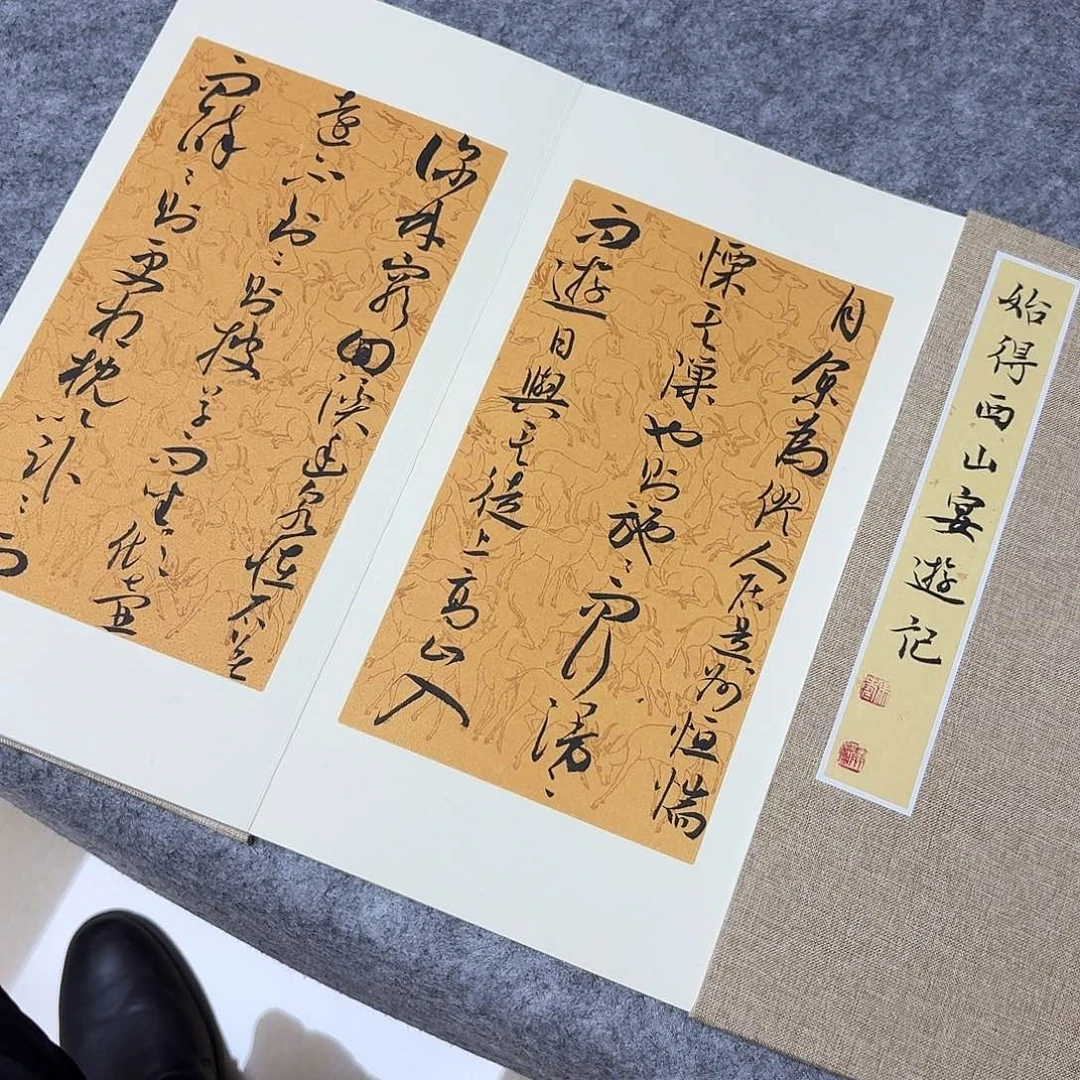 始得西山宴遊記
自余為僇人居是州恒惴
慄其隟也則施〻而行漫〻
而遊日與其徒上高山入
深林窮回溪幽泉怪石無
遠不到〻則披草而坐〻傾壺
而醉〻則更相枕以臥〻而